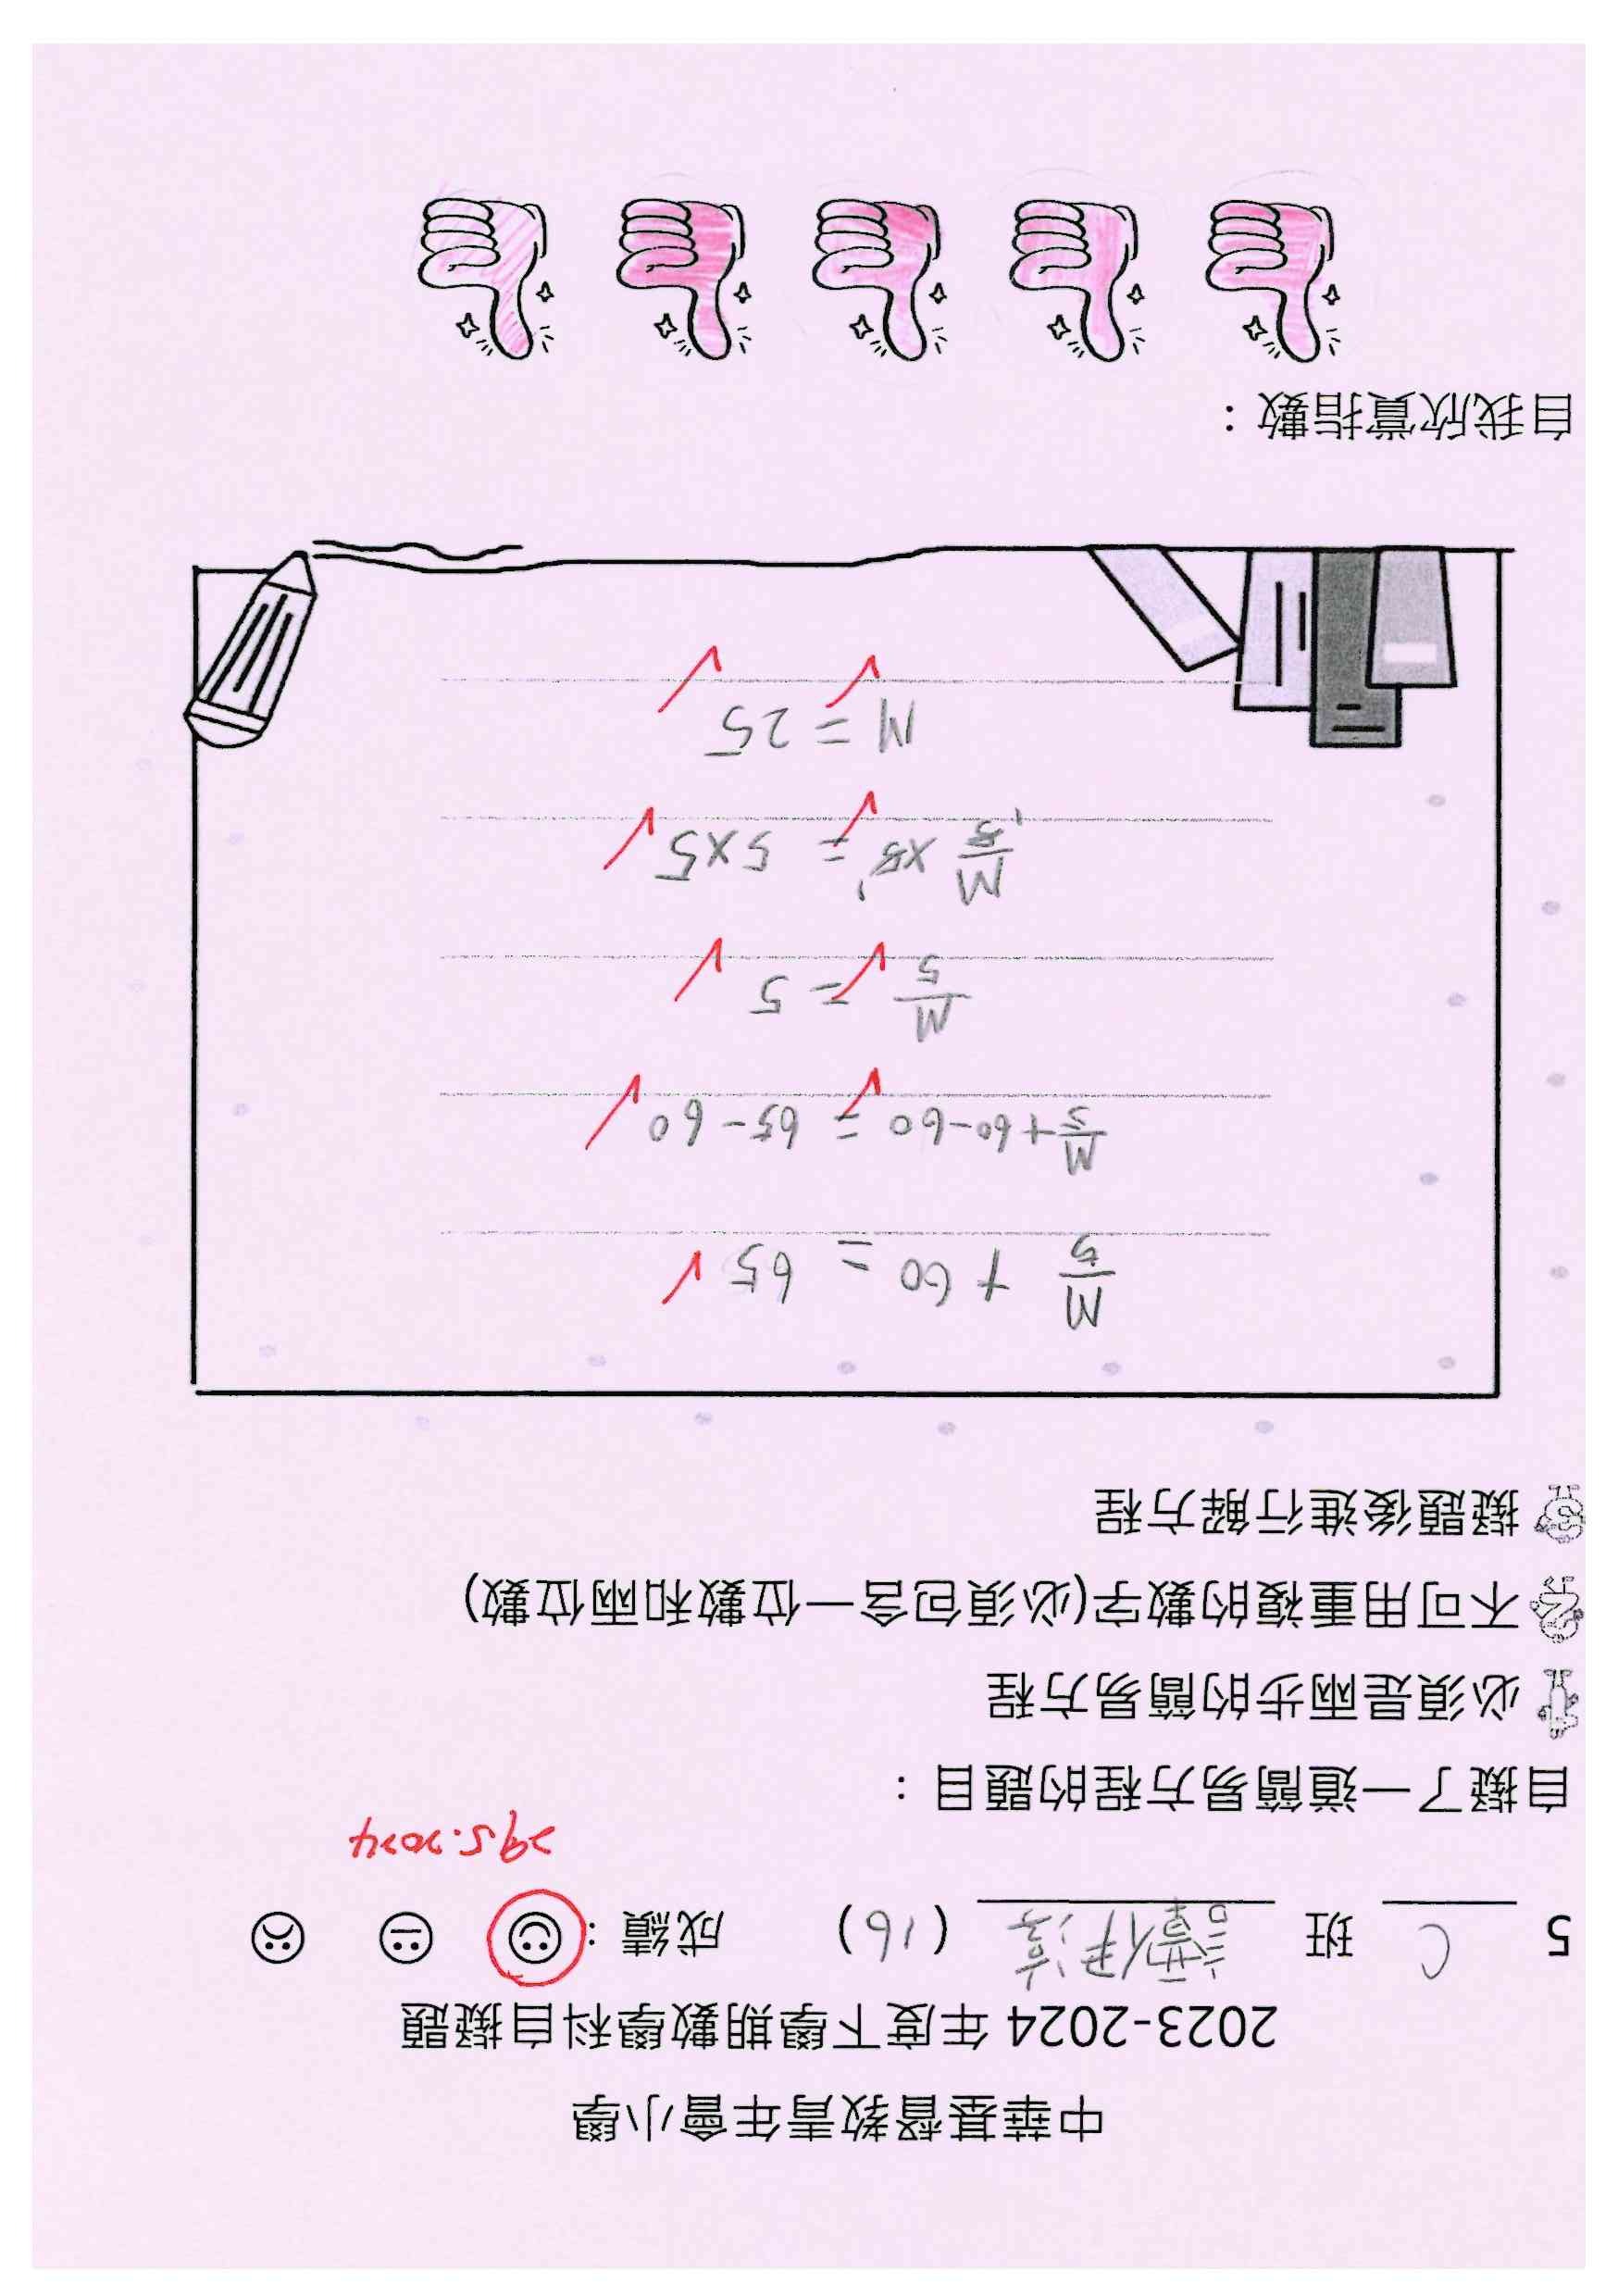 中華基督教青年會小學
2023-2024 年度下學期數學科自擬題
5 C 班 譚伊淳 (16) 成績：
29.5.2024
自擬了一道簡易方程的題目：
必須是兩步的簡易方程
不可用重複的數字(必須包含一位數和兩位數)
擬題後進行解方程
M/5 + 60 = 65
M/5 + 60-60 = 65-60
M/5 = 5
M/5 x5 = 5x5
M = 25
自我欣賞指數：